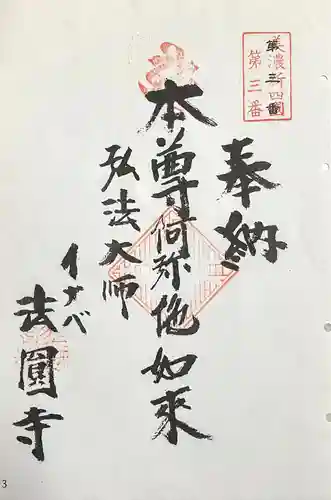 美濃新四国
第三番
奉納
本尊阿弥陀如来
弘法大師
イナベ
法圓寺
3